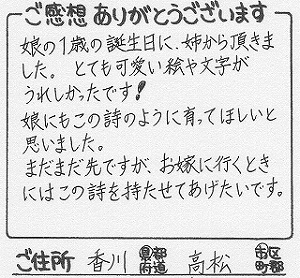 ご感想ありがとうございます
娘の1歳の誕生日に、姉から頂きま
した。とても可愛い絵や文字が
うれしかったです!
娘にもこの詩のように育ってほしいと
思いました。
まだまだ先ですが、お嫁に行くとき
にはこの詩を持たせてあげたいです。
ご住所 香川 都道府県 高松 市区町郡